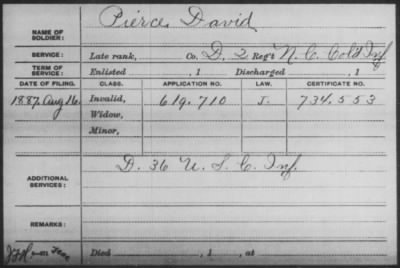 Pierce, David
NAME OF SOLDIER:
SERVICE: Late rank, Co. D, 2 Reg't N. C. Col'd Inf
TERM OF SERVICE: Enlisted , 1 Discharged , 1
DATE OF FILING. CLASS. APPLICATION NO. LAW. CERTIFICATE NO.
1887. Aug 16. Invalid, 619.710 J. 734.553
Widow,
Minor,
D. 36 U. S. C. Inf.
ADDITIONAL SERVICES:
REMARKS:
Died , 1 , at